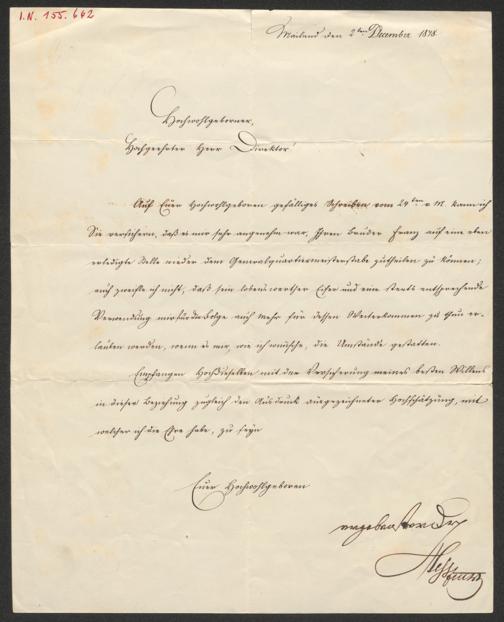 I.N. 155.662
Mailand den 2ten December 1848.
Hochwohlgeborner,
Hochgeehrter Herr Direktor!
Auf Euer Hochwohlgeboren gefälliges Schreiben vom 24ten v. M. kann ich
Sie versichern, daß es mir sehr angenehm war, Ihren Bruder Franz auf eine eben
erledigte Stelle wieder dem Generalquartiermeisterstabe zutheilen zu können;
auch zweifle ich nicht, daß sein lobenswerther Eifer und eine stets entsprechende
Verwendung mir für die Folge auch mehr für dessen Weiterkommen zu thun er-
lauben werden, wenn es mir, wie ich wünsche, die Umstände gestatten.
Empfangen Hochdieselben mit der Versicherung meines besten Willens
in dieser Beziehung zugleich den Ausdruck ausgezeichneter Hochschätzung, mit
welcher ich die Ehre habe, zu seyn
Euer Hochwohlgeboren
ergebenster Dr
Hess